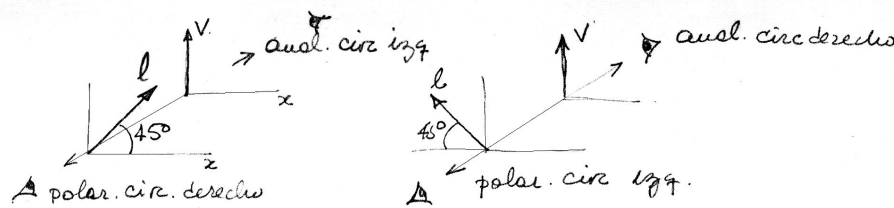 V
anal. circ izq
l
45°
x
x
polar. circ. derecho
V
anal. circ derecho
l
45°
polar. circ izq.